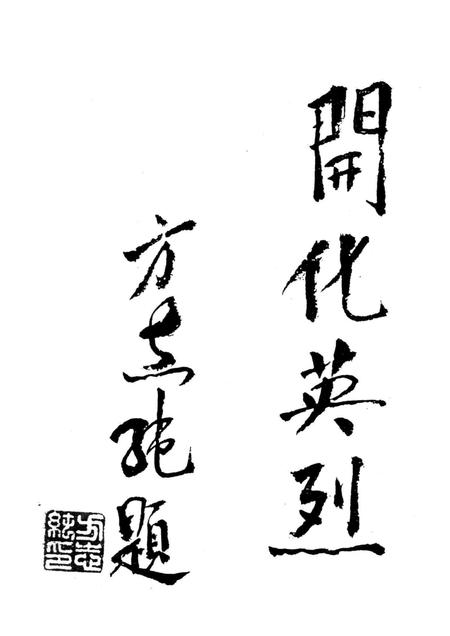 開化英烈
方志纯題
方志純印